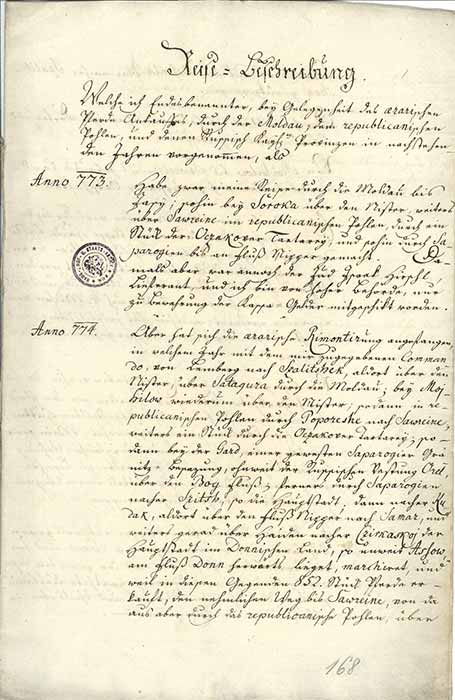 Reise-Beschreibung.
Welche ich Endesbenannter, bey Gelegenheit des ararischen
Pferde Ankaufes, durch die Moldau, dem republicanischen
Pohlen, und denen Russisch Kayl. Provinzen in nachstehen
den Jahren vorgenommen, als
Anno 773. Habe zwar meine Reise durch die Moldau bis
Jassy, sohin bey Soroka über den Nister, weiters
über Sawreine im republicanischen Pohlen, durch ein
Stück der Oczakover Tartarey, und sohin durch Sa-
parogien bis an Fluß Nipper gemacht. Da-
mals aber war annoch der Jud Israel Hirschl
Lieferant, und ich bin von hoher Behörde, nur
zu bewahrung der Kassa-Gelder mitgeschikt worden.
Anno 774. Aber hat sich die ararische Rimontirung angefangen,
in welchem Jahr mit dem mir zugegebenen Comman
do, von Lemberg nach Szalitshek, aldort über den
Nister, über Satagura durch die Moldau; bey Moj-
hilow wiederum über den Nister, sodann in re-
publicanischen Pohlen durch Poporeshe nach Sawreine,
weiters ein Stück durch die Oczakover Tartarey; so-
dann bey der Gard, einer gewesten Saparogier Grä
nitz-Besazung, ohnweit der Russischen Vestung Orl,
über den Bog Fluß; ferners durch Saparogien
nacher Szitsh, so die Hauptstadt, dann nacher Ku
dak, aldort über den Fluß Nipper nach Samar, und
weiters gerad über Haiden nacher Czirkaskoj der
Hauptstadt im Donnischen Land, so unweit Assow
am Fluß Donn herwärts lieget, marchiret, und
weil in diesen Gegenden 852. Stück Pferde er-
kauft, den nehmlichen Weg bis Sawreine, von da
aus aber durch das republicanische Pohlen, über
168